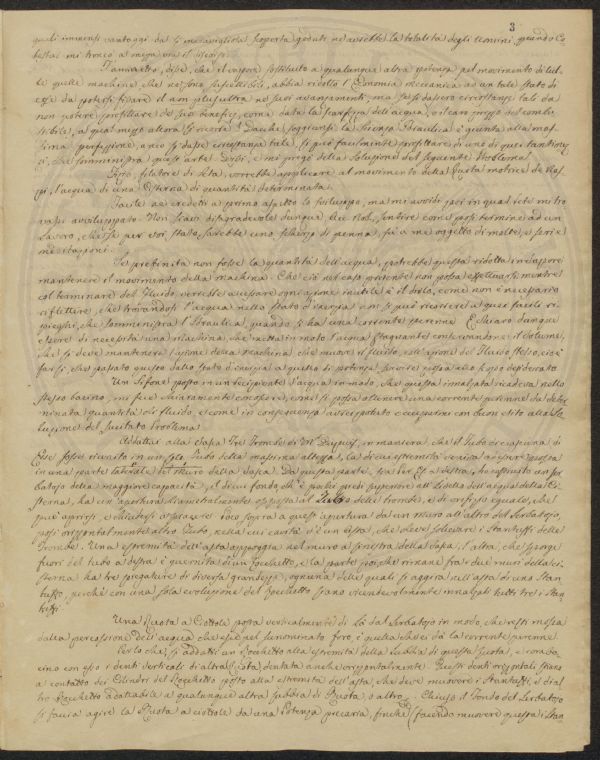 3
quali immensi vantaggi da sì meravigliosa scoperta goduti ne avrebbe la totalità degli Uomini, quando
mi troncò a mezza via il discorso.
disse, che il vapore sostituito a qualunque altra potenza pel movimento di tut-
te quelle macchine che ne sono suscettibili, abbia ridotto l'Economia meccanica ad un tale stato di
da potersi fissare il non plus ultra ne' suoi avanzamenti, ma se si dassero circostanze tali da
non potere profittare de' suoi benefizj, come data la scarsezza dell'acqua, o il caro prezzo del combu-
stibile, a qual mezzo allora si ricorre? Dacchè soggiunsi la Scienza Idraulica è giunta alla mas-
sima perfezione, anco si dasse circostanza tale, si può facilmente profittare di uno di quei tanti mez-
zi, che somministra quest'arte. e mi pregò della soluzione del seguente Problema.
filatore di seta, vorrebbe applicare al movimento della Ruota motrice de' Nas-
pi, l'acqua di una Cisterna di quantità determinata.
Facile ne credeti a primo aspetto lo sviluppo, ma mi avvidi poi in qual rete mi tro-
vassi avviluppato. Non siavi disaggradevole dunque, sentire come posi termine ad un
Lavoro, che se per voi, stato sarebbe uno scherzo di penna, fu a me oggetto di molte, e serie
meditazioni.
Se prefinita non fosse la quantità dell'acqua, potrebbe questa ridotta in vapore
mantenere il movimento della macchina. Che ciò nel caso presente non possa effettuarsi mentre
col terminare del Fluido verrebbe a cessare ogni azione inutile è il dirlo, come non è necessario
riflettere, che trovandosi l'acqua nello stato d'inerzia non si può ricorrere a quei facili ri-
pieghi, che somministra l'Idraulica, quando si ha una corrente perenne. E chiaro dunque
essere di necessità una macchina, che metta in moto l'acqua stagnante conservandone il volume,
che si deve mantenere l'azione della macchina che muove il fluido, coll'azione del Fluido stesso, cioè
far sì, che passato questo dallo stato d'inerzia a quello di potenza servire possa allo scopo desiderato.
Un Sifone posto in un recipiente d'acqua in modo, che questa innalzata ricadeva nello
stesso bacino, mi fece chiaramente conoscere, come si possa ottenere una corrente perenne da deter-
minata quantità di fluido, e come in conseguenza avrei potuto occuparmi con buon esito alla so-
luzione del succitato Problema.
Adattai alla Cassa Tre Trombe di Mr. in maniera, che il Tubo di
Esse fosse riunito in un solo Tubo della massima altezza, la di cui estremità veniva a sporgere
in una parte laterale del muro della Cassa. Da questa parte, a destra, ho costruito un ser-
batojo della maggiore capacità, il di cui fondo, ch'è pochi piedi superiore all'idello dell'acqua della Ci-
sterna, ha un'apertura diametralmente opposta al Tubo delle trombe, e di orifizio eguale, che
può aprirsi, e chiudersi a piacere. Poco sopra a quest'apertura da un muro all'altro del Serbatojo,
posi orizzontalmente altro Tubo, nella cui cavità v'è un'asta, che deve sollevare i Stantuffi delle
Trombe. Una estremità dell'asta appoggia nel muro a sinistra della Cassa, l'altra, che sporge
fuori del tubo a destra è guernita di un Rocchetto, e la parte poi che rimane fra i due muri della Ci-
sterna ha tre piegature di diversa grandezza, ognuna delle quali si aggira nell'asta di uno Stan-
tuffo, perchè con una sola evoluzione del Rocchetto siano vicendevolmente innalzati tutti tre i Stan-
tuffi.
Una Ruota a Ciottole posta verticalmente di là dal Serbatojo in modo, che resti mossa
dalla percussione dell'acqua che esce pel sunominato foro, è quella che ci dà la corrente perenne.
Per lo che, si addatti un Rocchetto alla estremità della Subbia di questa Ruota, e comba-
cino con esso i denti verticali di altra Ruota, dentata anche orizzontalmente. Questi denti orizzontali stiano
a contatto dei Cilindri del Rocchetto posto alla estremità dell'asta, che deve muovere i Stantuffi, e d'al-
tro Rocchetto adattabile a qualunque altra subbia di Ruota, o altro. Chiuso il Fondo del Serbatojo
si faccia agire la Ruota a ciottole da una Potenza precaria, finchè (facendo muovere questa i Stan-